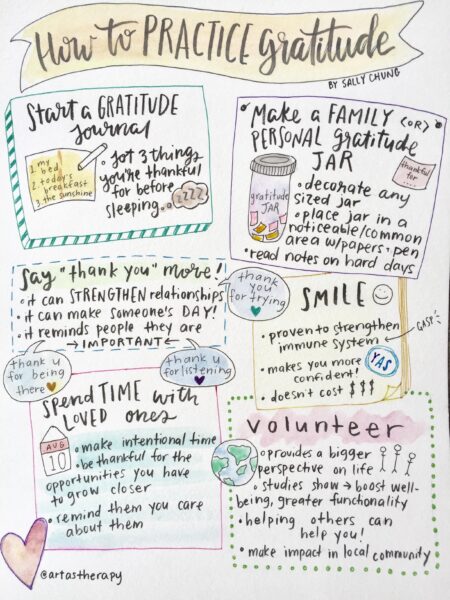 How to PRACTICE gratitude
BY SALLY CHUNG
Start a GRATITUDE
journal
1. my
bed
2. today's
breakfast
3. the sunshine
• jot 3 things
you're thankful
for before
sleeping.
zzzz
Make a FAMILY <OR>
PERSONAL gratitude
JAR
thankful
for...
gratitude
JAR
• decorate any
sized jar
• place jar in a
noticeable/common
area w/papers + pen
• read notes on hard days
Say "thank you" more!
• it can STRENGTHEN relationships
• it can make someone's DAY!
• it reminds people they are
→ IMPORTANT ←
thank
you
for trying
thank u
for being
there
thank u
for listening
SMILE
• proven to strengthen
immune system
GASP!
• makes you more
confident!
YAS
• doesn't cost $$$
Spend TIME with
LOVED ones
AUG
10
• make intentional time
• be thankful for the
opportunities you have
to grow closer
• remind them you care
about them
volunteer
• provides a bigger
perspective on life
• studies show → boost well-
being, greater functionality
• helping others can
help you!
• make impact in local community
@artastherapy